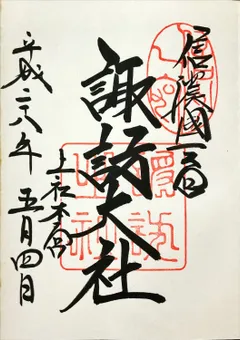 信濃國一之宮
諏訪大社
上社本宮
平成二八年五月四日